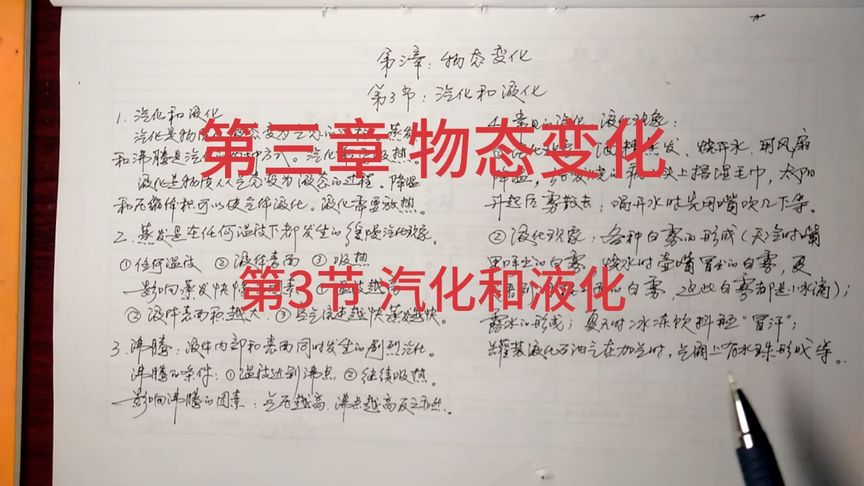 第三章:物态变化
第3节:汽化和液化
第三章 物态变化
第3节 汽化和液化
1. 汽化和液化
汽化是物质从液态变为气态的过程。蒸发
和沸腾是汽化的两种方式。汽化需要吸热。
液化是物质从气态变为液态的过程。降温
和压缩体积可以使气体液化。液化需要放热。
2. 蒸发是在任何温度下都发生的缓慢汽化现象。
①任何温度 ②液体表面 ③吸热
影响蒸发快慢的因素:①温度越高
②液体表面积越大 ③空气流速越快蒸发越快。
3. 沸腾:液体内部和表面同时发生的剧烈汽化。
沸腾的条件:①温度达到沸点 ②继续吸热。
影响沸腾的因素:气压越高,沸点越高反之亦然。
4. 常见的汽化、液化现象:
酒精蒸发、烧开水、用风扇
降温,给发烧的病人头上搭湿毛巾,太阳
升起后雾散去;喝开水时先用嘴吹几下等。
②液化现象:各种白雾的形成(天冷时嘴
里呼出的白雾,烧水时壶嘴冒出的白雾,夏
的白雾,这些白雾都是小水滴);
露水的形成;夏天时冰冻饮料瓶"冒汗";
罐装液化石油气在加气时,气罐上有水珠形成等。